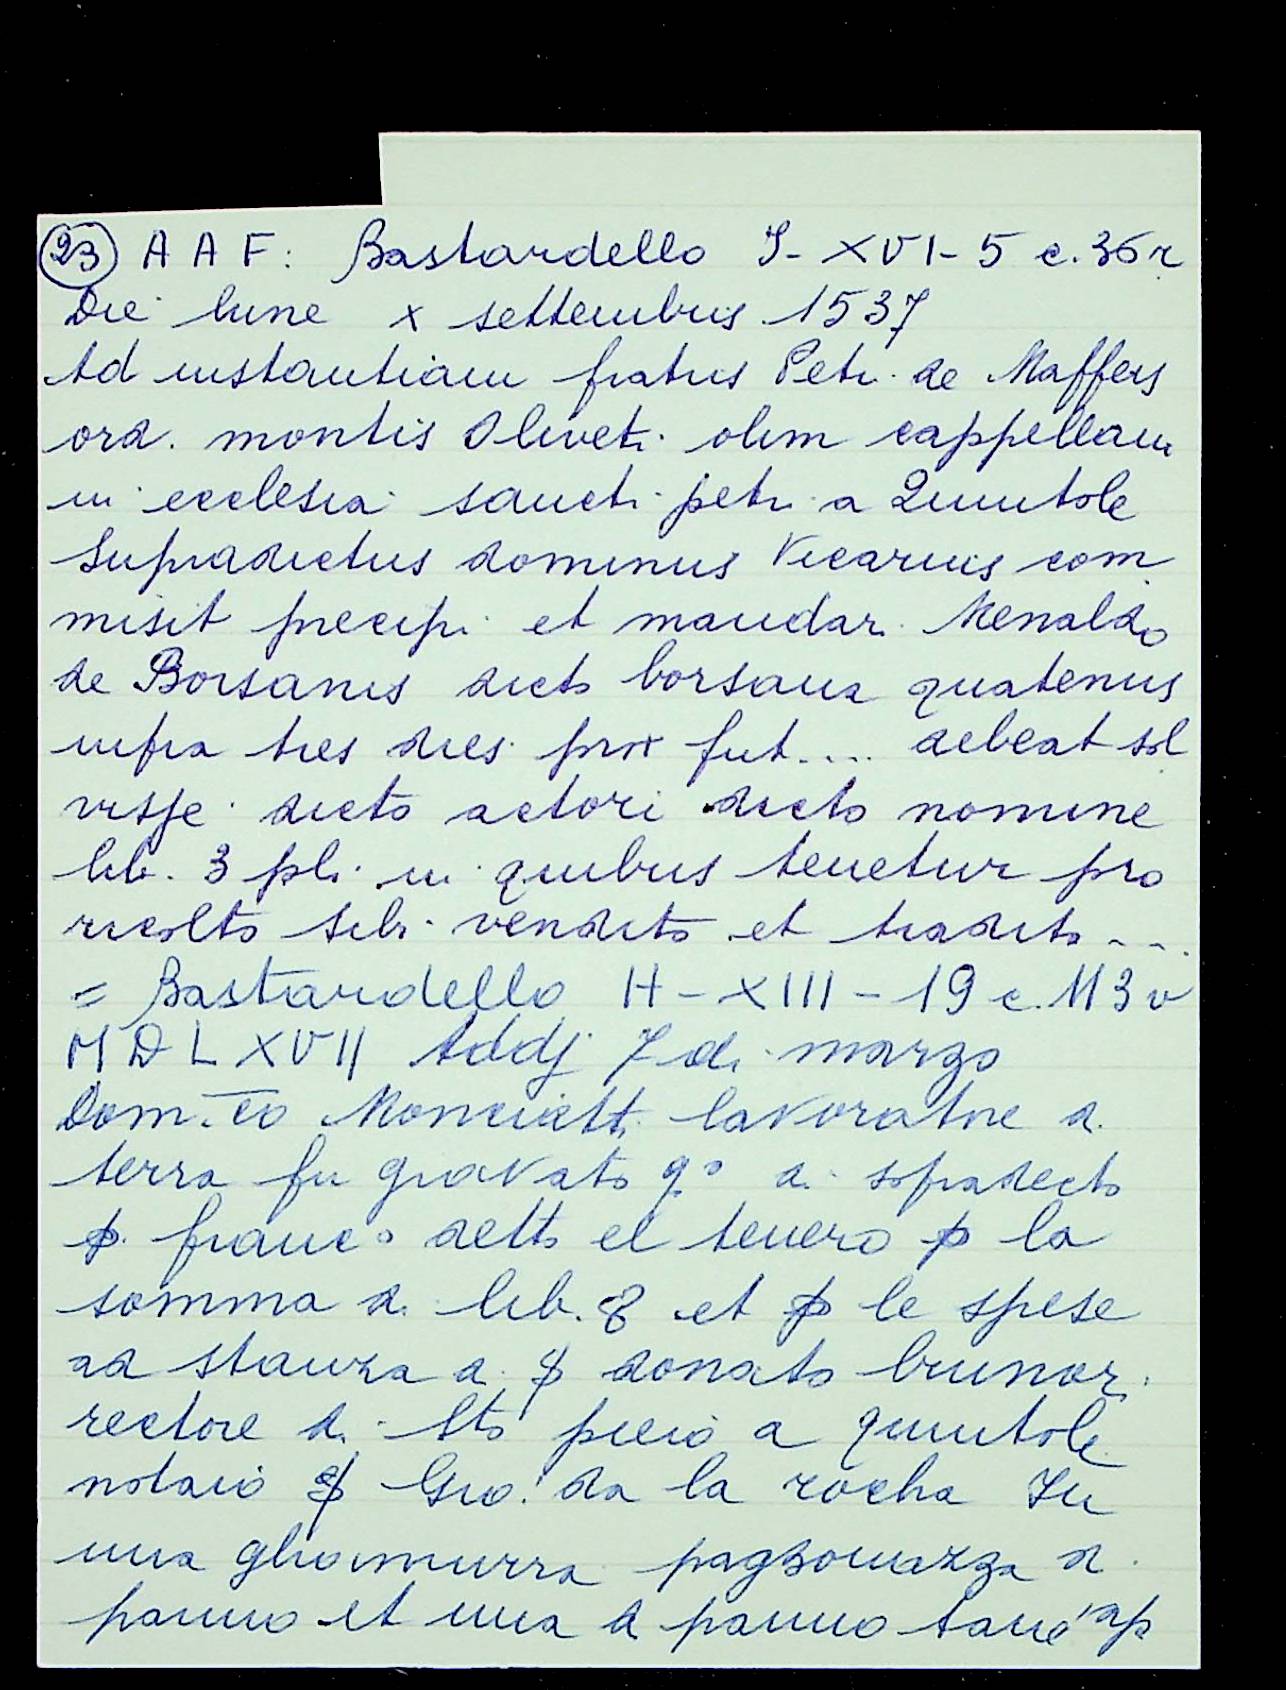 23 A A F: Bastardello I- XVI- 5 c. 36 r
Die lune x settembris 1537
Ad instantiam fratris Petri de Maffeis
ord. montis Oliveti olim cappellani
in ecclesia sancti petri a Quintole
Supradictus dominus Vicarius com
misit precipi et mandari Menaldo
de Borsanis dicto borsana quatenus
infra tres dies prox fut.... debeat sol
visse dicto actori dicto nomine
lib. 3 pli. in quibus tenetur pro
ricolto sibi vendito et tradito ....
= Bastardello H - XIII - 19 c. 113 v
M D L XVII Addj 7 di marzo
Dom.co Moncietti lavoratore di
terra fu gravato q.o di sopradecto
p. franc.o detto el tenero p la
somma di lib. 8 et p le spese
ad stanza di S donato brunori
rectore di Sto piero a quintole
notaio S Gio: da la rocha In
una ghamurra pagonazza di
panno et una di panno tané ap